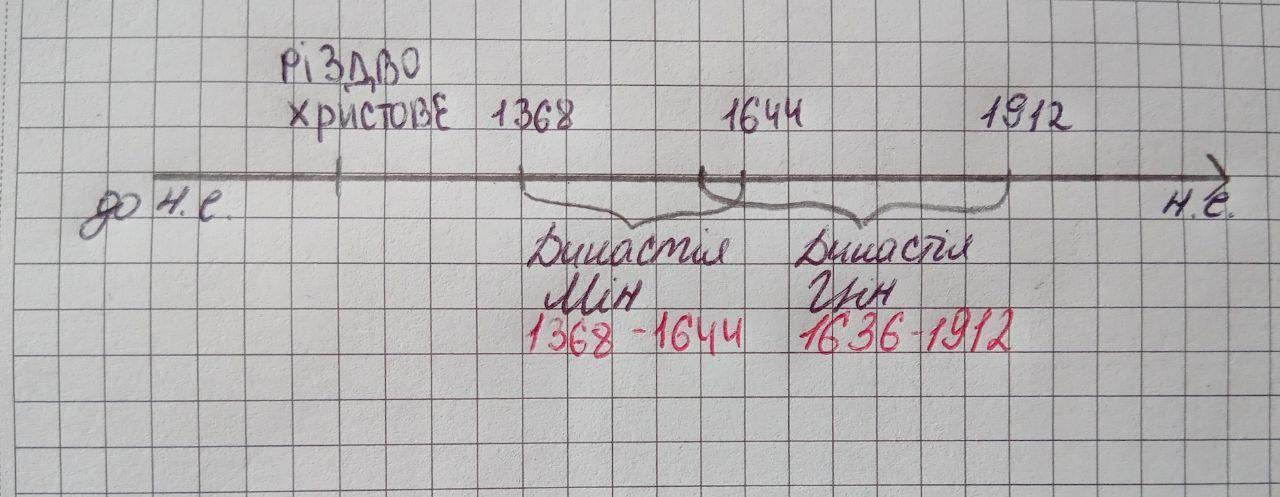 Різдво
Христове 1368 1644 1912
до н.е. н.е.
Династія Династія
Мін Цін
1368-1644 1636-1912